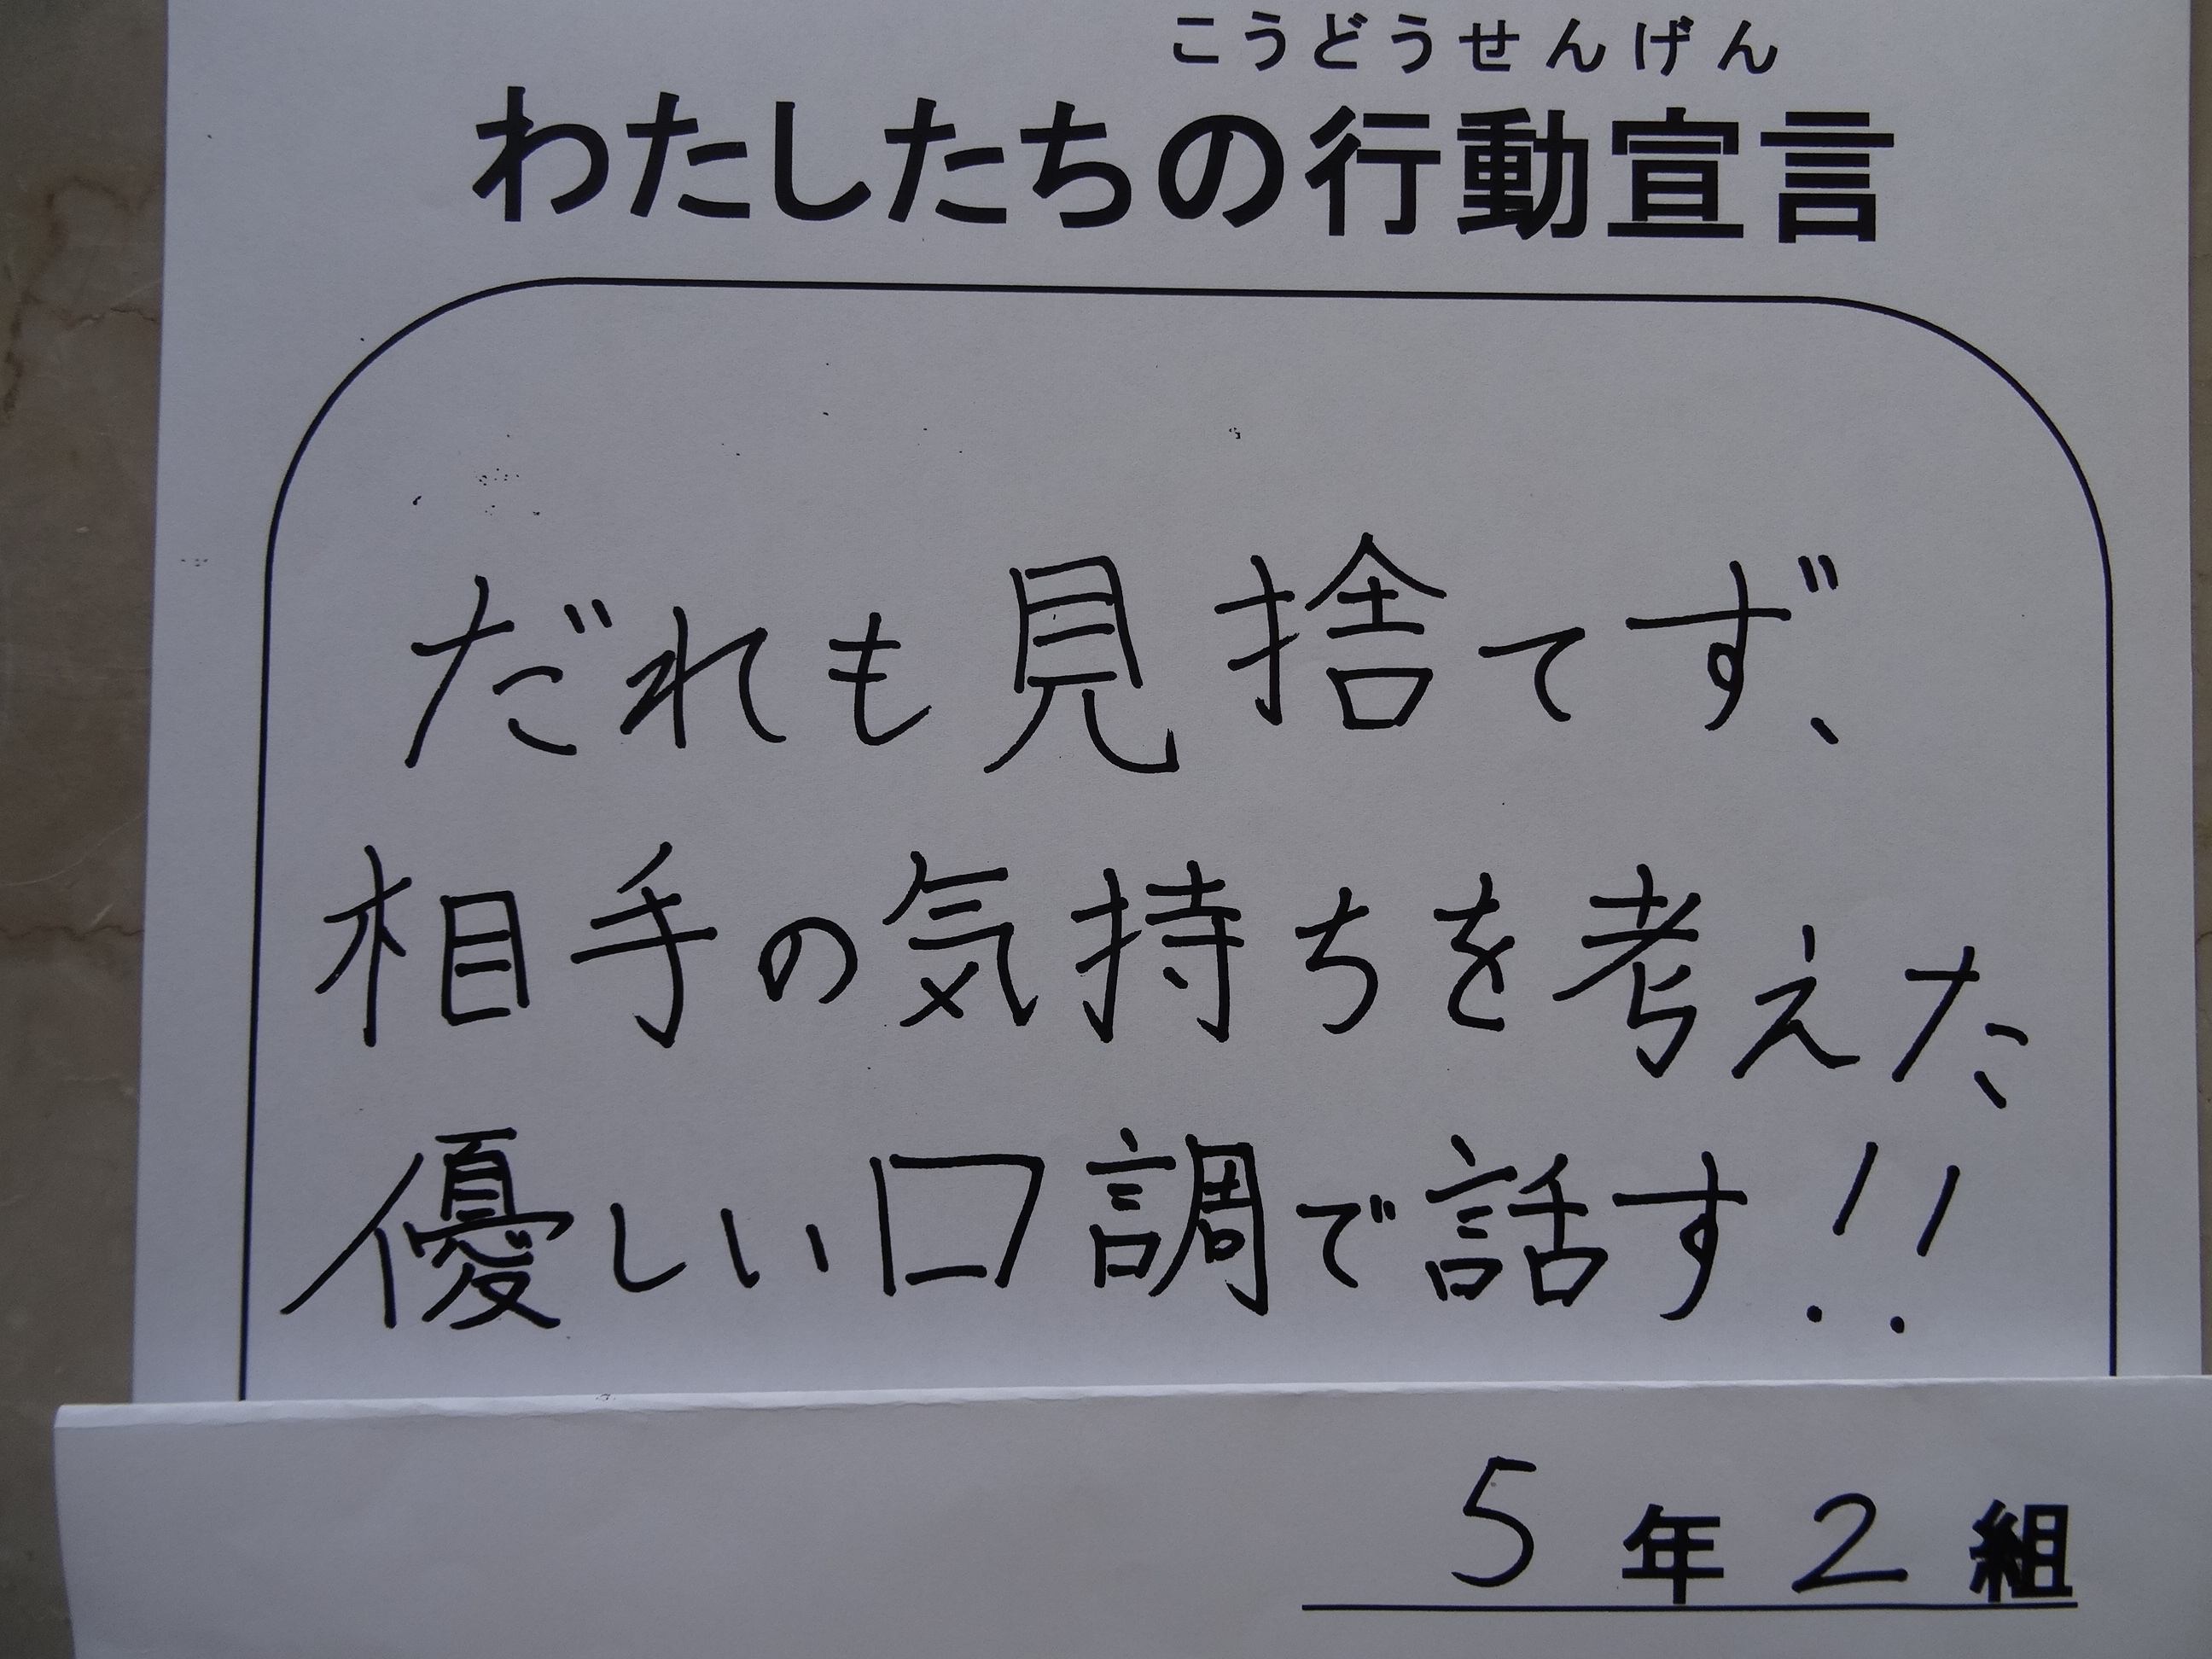 こうどうせんげん
わたしたちの行動宣言
だれも見捨てず、
相手の気持ちを考えた
優しい口調で話す!!
5年2組